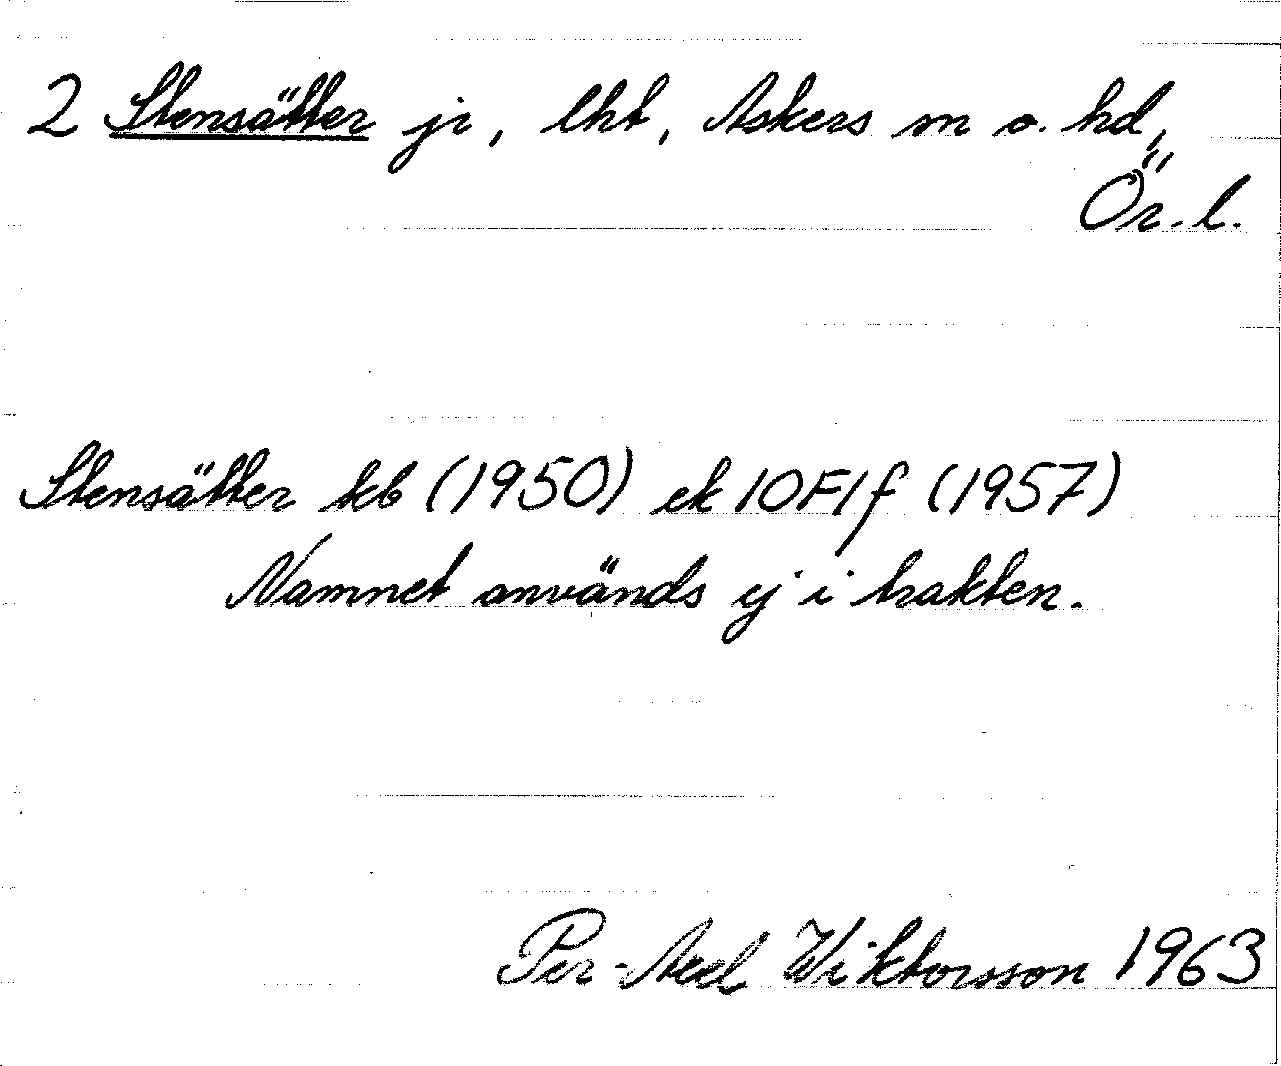 2 Stensätter jr, lht, Askers sn o. hd,
Ör. l.
Stensätter kb (1950) ek 10F1f (1957)
Namnet används ej i trakten.
Per-Axel Wiktorsson 1963